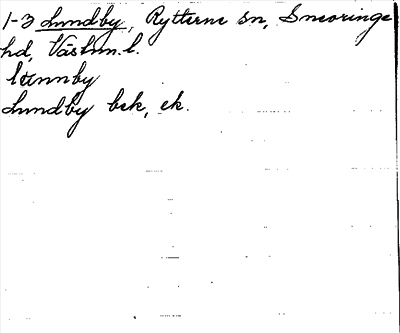 1-3 Lundby, Rytterne sn, Snevringe
hd, Västm. l.
lännby
Lundby bek, ek.